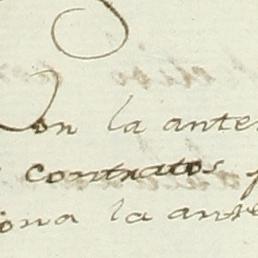 Con la ante
contratos
ona la ante